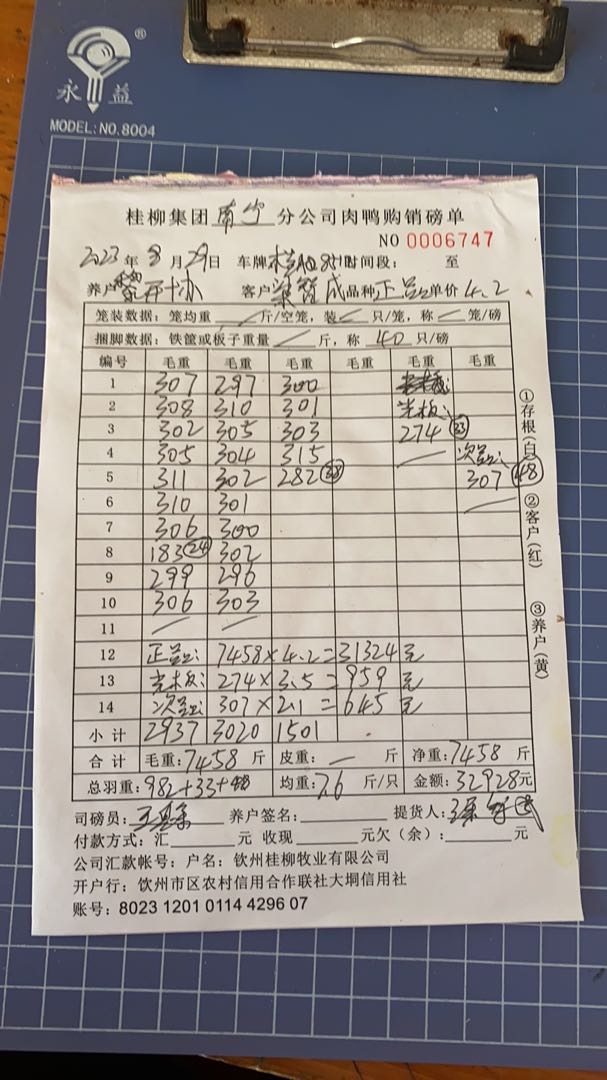 永益®
MODEL: NO.8004
桂柳集团 南宁 分公司肉鸭购销磅单
NO 0006747
2023年8月29日 车牌 时间段： 至
养户 客户 成 品种 正品 单价 4.2
笼装数据：笼均重 斤/空笼，装 只/笼，称 笼/磅
捆脚数据：铁筐或板子重量 斤，称 40 只/磅
编号 毛重 毛重 毛重 毛重 毛重 毛重
1 307 297 300
2 308 310 301 光板:
3 302 305 303 274 33
4 305 304 315 — 次品:
5 311 302 282 38 307 48
6 310 301 —
7 306 300
8 183 24 302
9 299 296
10 306 303
11 — —
12 正品: 7458×4.2=31324元
13 光板: 274×3.5=959元
14 次品: 307×2.1=645元
小计 2937 3020 1501
合计 毛重: 7458 斤 皮重: — 斤 净重: 7458 斤
总羽重: 982+33+48 均重: 7.6 斤/只 金额: 32928元
司磅员: 养户签名: 提货人:
付款方式：汇 元 收现 元欠（余）: 元
公司汇款帐号：户名：钦州桂柳牧业有限公司
开户行：钦州市区农村信用合作联社大垌信用社
账号：8023 1201 0114 4296 07
①存根(白)
②客户(红)
③养户(黄)